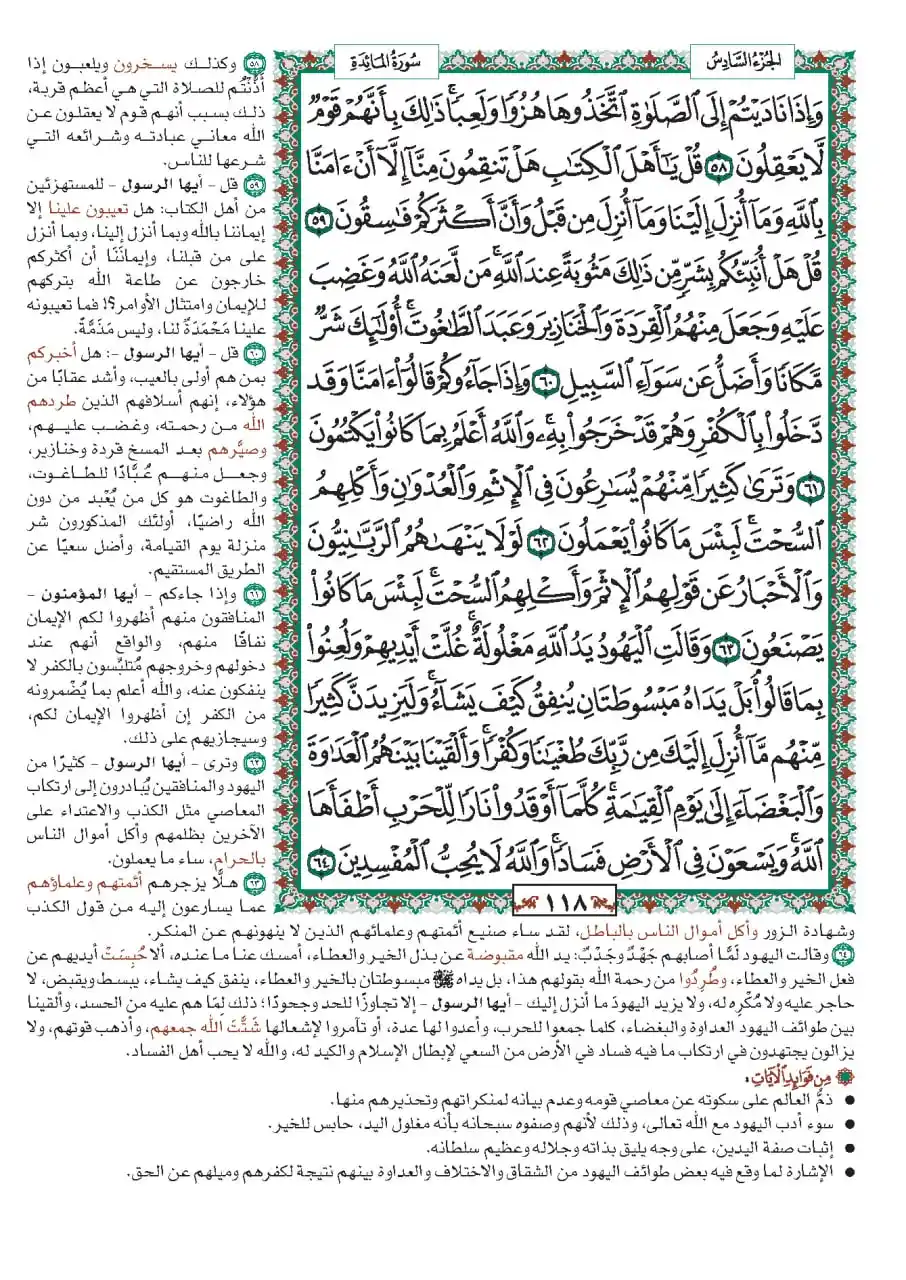 الجُزْءُ السَّادِسُ
سُورَةُ المَائِدَةِ
وَإِذَا نَادَيْتُمْ إِلَى ٱلصَّلَوٰةِ ٱتَّخَذُوهَا هُزُوًا وَلَعِبًا ۚ ذَٰلِكَ بِأَنَّهُمْ قَوْمٌ
لَّا يَعْقِلُونَ ٥٨ قُلْ يَٰٓأَهْلَ ٱلْكِتَٰبِ هَلْ تَنقِمُونَ مِنَّآ إِلَّآ أَنْ ءَامَنَّا
بِٱللَّهِ وَمَآ أُنزِلَ إِلَيْنَا وَمَآ أُنزِلَ مِن قَبْلُ وَأَنَّ أَكْثَرَكُمْ فَٰسِقُونَ ٥٩
قُلْ هَلْ أُنَبِّئُكُم بِشَرٍّ مِّن ذَٰلِكَ مَثُوبَةً عِندَ ٱللَّهِ ۚ مَن لَّعَنَهُ ٱللَّهُ وَغَضِبَ
عَلَيْهِ وَجَعَلَ مِنْهُمُ ٱلْقِرَدَةَ وَٱلْخَنَازِيرَ وَعَبَدَ ٱلطَّٰغُوتَ ۚ أُو۟لَٰٓئِكَ شَرٌّ
مَّكَانًا وَأَضَلُّ عَن سَوَآءِ ٱلسَّبِيلِ ٦٠ وَإِذَا جَآءُوكُمْ قَالُوٓا۟ ءَامَنَّا وَقَد
دَّخَلُوا۟ بِٱلْكُفْرِ وَهُمْ قَدْ خَرَجُوا۟ بِهِۦ ۚ وَٱللَّهُ أَعْلَمُ بِمَا كَانُوا۟ يَكْتُمُونَ
٦١ وَتَرَىٰ كَثِيرًا مِّنْهُمْ يُسَٰرِعُونَ فِى ٱلْإِثْمِ وَٱلْعُدْوَٰنِ وَأَكْلِهِمُ
ٱلسُّحْتَ ۚ لَبِئْسَ مَا كَانُوا۟ يَعْمَلُونَ ٦٢ لَوْلَا يَنْهَىٰهُمُ ٱلرَّبَّٰنِيُّونَ
وَٱلْأَحْبَارُ عَن قَوْلِهِمُ ٱلْإِثْمَ وَأَكْلِهِمُ ٱلسُّحْتَ ۚ لَبِئْسَ مَا كَانُوا۟
يَصْنَعُونَ ٦٣ وَقَالَتِ ٱلْيَهُودُ يَدُ ٱللَّهِ مَغْلُولَةٌ ۚ غُلَّتْ أَيْدِيهِمْ وَلُعِنُوا۟
بِمَا قَالُوا۟ ۘ بَلْ يَدَاهُ مَبْسُوطَتَانِ يُنفِقُ كَيْفَ يَشَآءُ ۚ وَلَيَزِيدَنَّ كَثِيرًا
مِّنْهُم مَّآ أُنزِلَ إِلَيْكَ مِن رَّبِّكَ طُغْيَٰنًا وَكُفْرًا ۚ وَأَلْقَيْنَا بَيْنَهُمُ ٱلْعَدَٰوَةَ
وَٱلْبَغْضَآءَ إِلَىٰ يَوْمِ ٱلْقِيَٰمَةِ ۚ كُلَّمَآ أَوْقَدُوا۟ نَارًا لِّلْحَرْبِ أَطْفَأَهَا
ٱللَّهُ ۚ وَيَسْعَوْنَ فِى ٱلْأَرْضِ فَسَادًا ۚ وَٱللَّهُ لَا يُحِبُّ ٱلْمُفْسِدِينَ ٦٤
١١٨
٥٨ وكذلك يسخرون ويلعبون إذا
أَذَّنْتُم للصلاة التي هي أعظم قربة،
ذلك بسبب أنهم قوم لا يعقلون عن
الله معاني عبادته وشرائعه التي
شرعها للناس.
٥٩ قل - أيها الرسول - للمستهزئين
من أهل الكتاب: هل تعيبون علينا إلا
إيماننا بالله وبما أنزل إلينا، وبما أنزل
على من قبلنا، وإيمانَنَا أن أكثركم
خارجون عن طاعة الله بتركهم
للإيمان وامتثال الأوامر؟! فما تعيبونه
علينا مَحْمَدَةٌ لنا، وليس مَذَمَّةً.
٦٠ قل - أيها الرسول -: هل أخبركم
بمن هم أولى بالعيب، وأشد عقابًا من
هؤلاء، إنهم أسلافهم الذين طردهم
الله من رحمته، وغضب عليهم،
وصيَّرهم بعد المسخ قردة وخنازير،
وجعل منهم عُبَّادًا للطاغوت،
والطاغوت هو كل من يُعْبد من دون
الله راضيًا، أولئك المذكورون شر
منزلة يوم القيامة، وأضل سعيًا عن
الطريق المستقيم.
٦١ وإذا جاءكم - أيها المؤمنون -
المنافقون منهم أظهروا لكم الإيمان
نفاقًا منهم، والواقع أنهم عند
دخولهم وخروجهم مُتلبِّسون بالكفر لا
ينفكون عنه، والله أعلم بما يُضْمرونه
من الكفر إن أظهروا الإيمان لكم،
وسيجازيهم على ذلك.
٦٢ وترى - أيها الرسول - كثيرًا من
اليهود والمنافقين يُبادرون إلى ارتكاب
المعاصي مثل الكذب والاعتداء على
الآخرين بظلمهم وأكل أموال الناس
بالحرام، ساء ما يعملون.
٦٣ هلَّا يزجرهم أئمتهم وعلماؤهم
عما يسارعون إليه من قول الكذب
وشهادة الزور وأكل أموال الناس بالباطل، لقد ساء صنيع أئمتهم وعلمائهم الذين لا ينهونهم عن المنكر.
٦٤ وقالت اليهود لَمَّا أصابهم جَهْدٌ وجَدْبٌ: يد الله مقبوضة عن بذل الخير والعطاء، أمسك عنا ما عنده، ألا حُبِسَتْ أيديهم عن
فعل الخير والعطاء، وطُرِدُوا من رحمة الله بقولهم هذا، بل يداه ﷻ مبسوطتان بالخير والعطاء، ينفق كيف يشاء، يبسط ويقبض، لا
حاجر عليه ولا مُكْرِه له، ولا يزيد اليهودَ ما أنزل إليك - أيها الرسول - إلا تجاوزًا للحد وجحودًا؛ ذلك لِمَا هم عليه من الحسد، وألقينا
بين طوائف اليهود العداوة والبغضاء، كلما جمعوا للحرب، وأعدوا لها عدة، أو تآمروا لإشعالها شَتَّتَ الله جمعهم، وأذهب قوتهم، ولا
يزالون يجتهدون في ارتكاب ما فيه فساد في الأرض من السعي لإبطال الإسلام والكيد له، والله لا يحب أهل الفساد.
مِن فَوَائِدِ الآيَاتِ:
● ذمُّ العالم على سكوته عن معاصي قومه وعدم بيانه لمنكراتهم وتحذيرهم منها.
● سوء أدب اليهود مع الله تعالى، وذلك لأنهم وصفوه سبحانه بأنه مغلول اليد، حابس للخير.
● إثبات صفة اليدين، على وجه يليق بذاته وجلاله وعظيم سلطانه.
● الإشارة لما وقع فيه بعض طوائف اليهود من الشقاق والاختلاف والعداوة بينهم نتيجة لكفرهم وميلهم عن الحق.